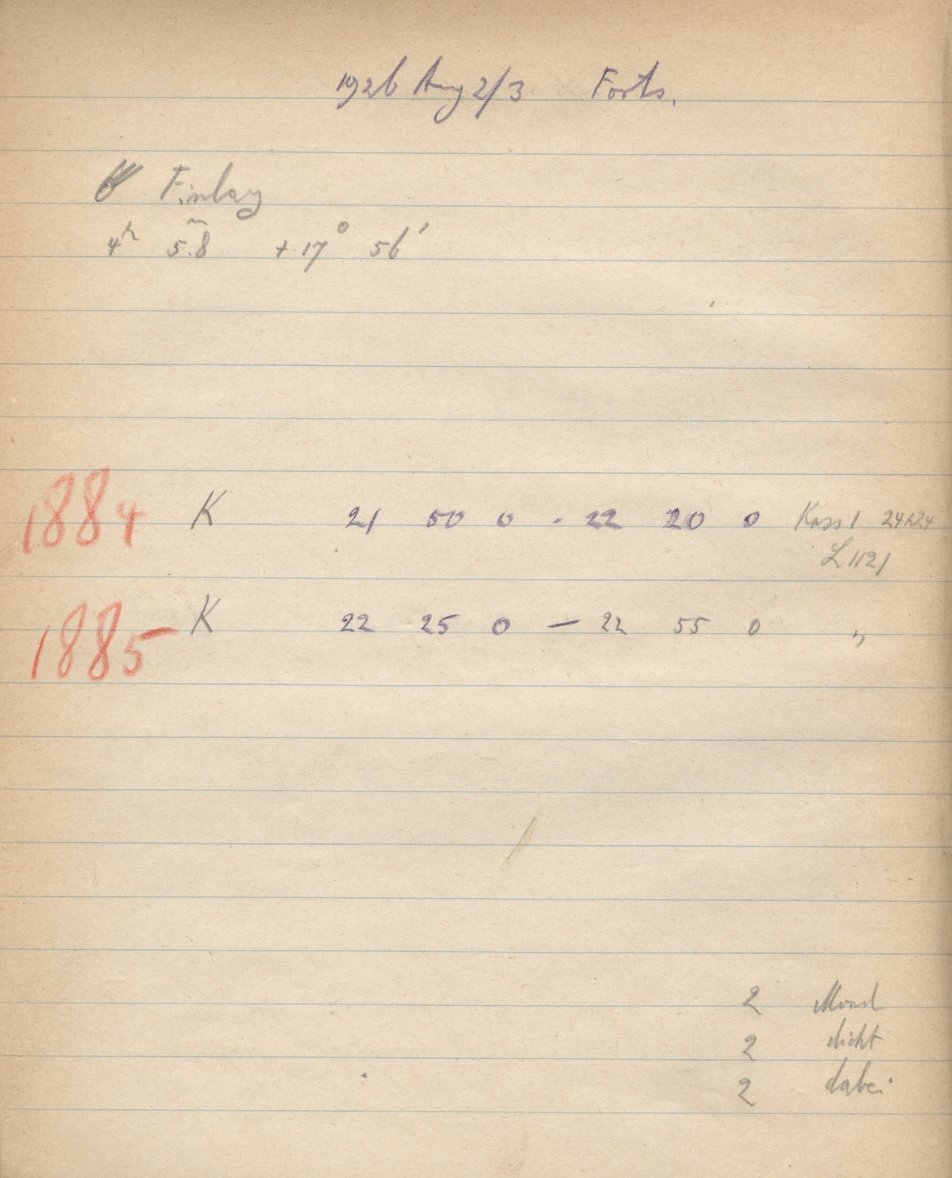 1926 Aug 2/3 Forts.
Finlay
4h 5.8m +17° 56'
1884 K 21 50 0 - 22 20 0 Kass 1 24x24
L 1121
1885 K 22 25 0 — 22 55 0 "
2 Mond
2 dicht
2 dabei